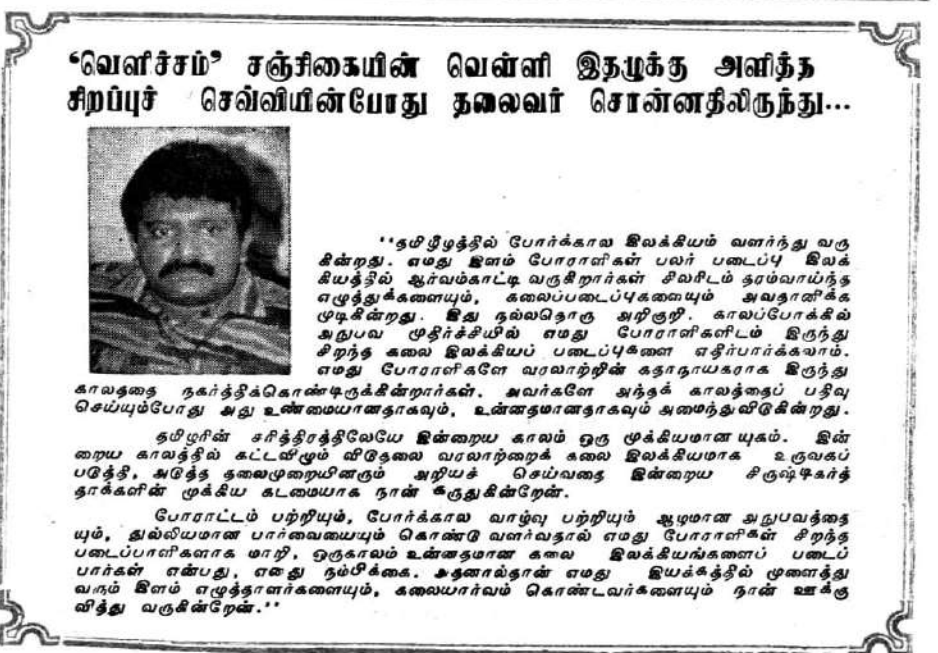 ‘வெளிச்சம்’ சஞ்சிகையின் வெள்ளி இதழுக்கு அளித்த
சிறப்புச் செவ்வியின்போது தலைவர் சொன்னதிலிருந்து...
‘‘தமிழீழத்தில் போர்க்கால இலக்கியம் வளர்ந்து வரு
கின்றது. எமது இளம் போராளிகள் பலர் படைப்பு இலக்
கியத்தில் ஆர்வம்காட்டி வருகிறார்கள் சிலரிடம் தரம்வாய்ந்த
எழுத்துக்களையும், கலைப்படைப்புகளையும் அவதானிக்க
முடிகின்றது. இது நல்லதொரு அறிகுறி. காலப்போக்கில்
அநுபவ முதிர்ச்சியில் எமது போராளிகளிடம் இருந்து
சிறந்த கலை இலக்கியப் படைப்புகளை எதிர்பார்க்கலாம்.
எமது போராளிகளே வரலாற்றின் கதாநாயகராக இருந்து
காலத்தை நகர்த்திக்கொண்டிருக்கின்றார்கள். அவர்களே அந்தக் காலத்தைப் பதிவு
செய்யும்போது அது உண்மையானதாகவும், உன்னதமானதாகவும் அமைந்துவிடுகின்றது.
தமிழரின் சரித்திரத்திலேயே இன்றைய காலம் ஒரு முக்கியமான யுகம். இன்
றைய காலத்தில் கட்டவிழும் விடுதலை வரலாற்றைக் கலை இலக்கியமாக உருவகப்
படுத்தி, அடுத்த தலைமுறையினரும் அறியச் செய்வதை இன்றைய சிருஷ்டிகர்த்
தாக்களின் முக்கிய கடமையாக நான் கருதுகின்றேன்.
போராட்டம் பற்றியும், போர்க்கால வாழ்வு பற்றியும் ஆழமான அநுபவத்தை
யும், துல்லியமான பார்வையையும் கொண்டு வளர்வதால் எமது போராளிகள் சிறந்த
படைப்பாளிகளாக மாறி, ஒருகாலம் உன்னதமான கலை இலக்கியங்களைப் படைப்
பார்கள் என்பது, எனது நம்பிக்கை. அதனால்தான் எமது இயக்கத்தில் முளைத்து
வரும் இளம் எழுத்தாளர்களையும், கலையார்வம் கொண்டவர்களையும் நான் ஊக்கு
வித்து வருகின்றேன்.’’